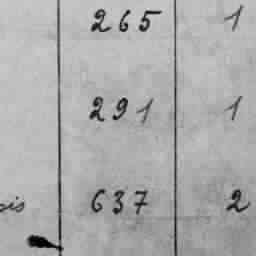 265 1
291 1
637 2